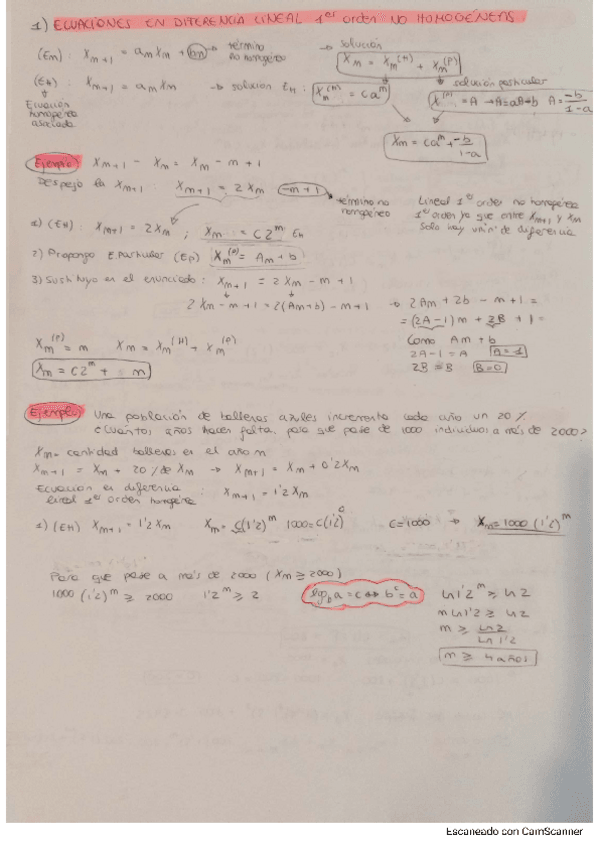 1) ECUACIONES EN DIFERENCIA LINEAL 1er orden NO HOMOGÉNEAS
(Em) : Xm+1 = am Xm + bm → término no homogéneo → solución Xm = Xm(H) + Xm(P)
(EH) : Xm+1 = am Xm → solución EH : Xm(H) = ca^m solución particular
Ecuación homogénea asociada X(P) = A → A = aA + b A = -b/1-a
Xm = ca^m + -b/1-a
Ejemplo Xm+1 - Xm = Xm - m + 1
Despejo la Xm+1 : Xm+1 = 2Xm -m+1 → término no homogéneo
Lineal 1er orden no homogénea
1er orden ya que entre Xm+1 y Xm
solo hay un nº de diferencia
1) (EH) : Xm+1 = 2Xm ; Xm = C2^m EH
2) Propongo E particular (EP) Xm(P) = Am + b
3) Sustituyo en el enunciado : Xm+1 = 2Xm - m + 1
2Xm - m + 1 = 2(Am+b) - m + 1 → 2Am + 2b - m + 1 =
= (2A-1)m + 2B + 1 =
Como Am + b
2A-1 = A A=1
2B = B B=0
Xm(P) = m Xm = Xm(H) + Xm(P)
Xm = C2^m + m
Ejemplo Una población de ballenas azules incrementa cada año un 20%
¿Cuántos años hacen falta para que pase de 1000 individuos a más de 2000?
Xm = cantidad ballenas en el año m
Xm+1 = Xm + 20% de Xm → Xm+1 = Xm + 0'2Xm
Ecuación en diferencia lineal 1er orden homogénea : Xm+1 = 1'2Xm
1) (EH) Xm+1 = 1'2Xm Xm = C(1'2)^m 1000 = C(1'2)^0 C=1000 → Xm = 1000(1'2)^m
Para que pase a más de 2000 (Xm ≥ 2000)
1000(1'2)^m ≥ 2000 1'2^m ≥ 2 log_b a = c ↔ b^c = a
ln 1'2^m ≥ ln 2
m ln 1'2 ≥ ln 2
m ≥ ln 2 / ln 1'2
m ≥ 4 años
Escaneado con CamScanner